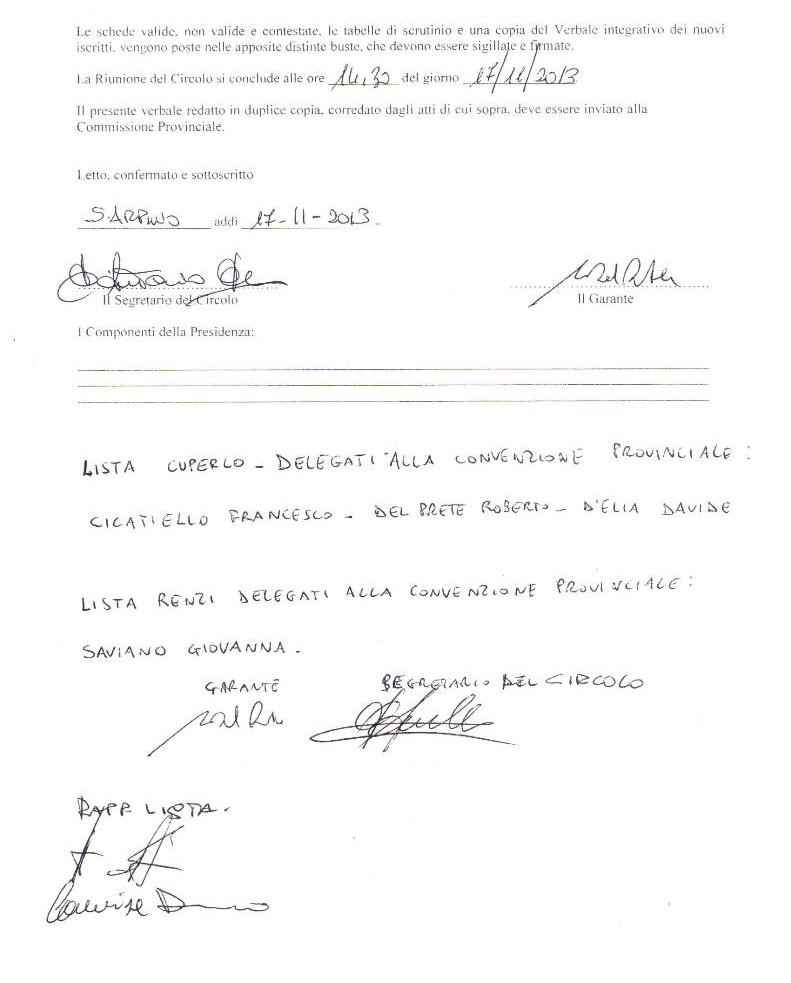 Le schede valide, non valide e contestate, le tabelle di scrutinio e una copia del Verbale integrativo dei nuovi
iscritti, vengono poste nelle apposite distinte buste, che devono essere sigillate e firmate.
La Riunione del Circolo si conclude alle ore 14,30 del giorno 17/11/2013
Il presente verbale redatto in duplice copia, corredato dagli atti di cui sopra, deve essere inviato alla
Commissione Provinciale.
Letto, confermato e sottoscritto
S. ARPINO addì 17-11-2013.
Il Segretario del Circolo Il Garante
I Componenti della Presidenza:
LISTA CUPERLO - DELEGATI ALLA CONVENZIONE PROVINCIALE:
CICATIELLO FRANCESCO - DEL PRETE ROBERTO - D'ELIA DAVIDE
LISTA RENZI DELEGATI ALLA CONVENZIONE PROVINCIALE:
SAVIANO GIOVANNA.
GARANTE SEGRETARIO DEL CIRCOLO
RAPP. LISTA.